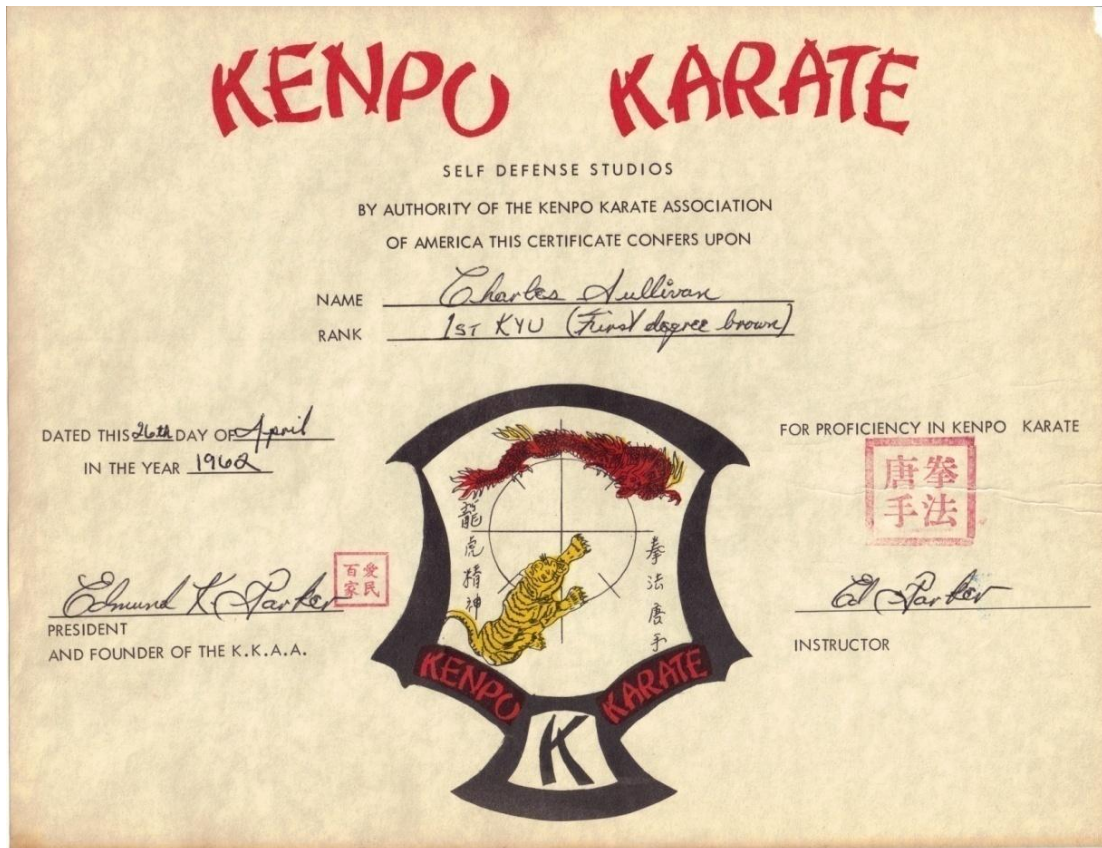 KENPO KARATE
SELF DEFENSE STUDIOS
BY AUTHORITY OF THE KENPO KARATE ASSOCIATION
OF AMERICA THIS CERTIFICATE CONFERS UPON
NAME Charles Sullivan
RANK 1ST KYU (First degree brown)
DATED THIS 26th DAY OF April
IN THE YEAR 1962
FOR PROFICIENCY IN KENPO KARATE
拳法
唐手
龍虎精神
拳法唐手
愛民
百家
Edmund K. Parker
PRESIDENT
AND FOUNDER OF THE K.K.A.A.
Ed Parker
INSTRUCTOR
KENPO KARATE
K